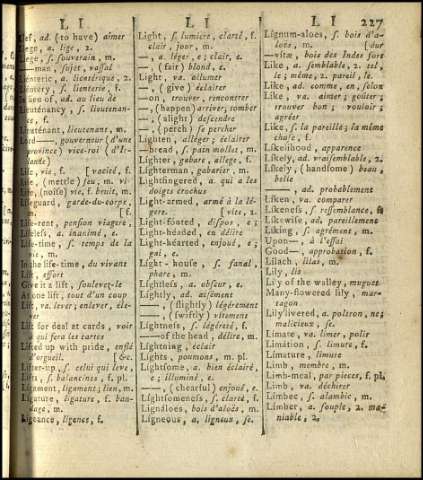 L I
L I
L I
227
Lief, ad. (to have) aimer
Liege, a. lige, 2.
Liege, s. souverain, m.
—man, sujet, vassal
Lienteric, a. lientérique, 2.
Lientery, s. lienterie, f.
In lieu of, ad. au lieu de
Lieutenancy, s. lieutenance, f.
Lieuténant, lieutenant, m.
Lord——, gouverneur (d'une
province) vice-roi (d'Ir-
lande)
Life, vie, f. [vacité, f.
Life, (mettle) feu, m. vi-
Life, (noise) vie, f. bruit, m.
Lifeguard, garde-du-corps,
m. [f.
Life-rent, pension viagere,
Lifeless, a. inanimé, e.
Life-time, s. temps de la
vie, m.
In the life-time, du vivant
Lift, effort
Give it a lift, soulevez-le
At one lift, tout d'un coup
Lift, va. lever, enlever, éle-
ver
Lift for deal at cards, voir
qui fera les cartes
Lifted up with pride, enflé
d'orgueil. [&c.
Lifter-up, s. celui qui leve,
Lifts, s. balancines, f. pl.
Ligament, ligament; lien, m.
Ligature, ligature, f. ban-
dage, m.
Ligeance, ligence, f.
Light, s. lumiere, clarté, f.
clair, jour, m.
—, a. léger, e; clair, e.
—, (fair) blond, e.
Light, va. allumer
—, (give) éclairer
—on, trouver, rencontrer
—, (happen) arriver, tomber
—, (alight) descendre
—, (perch) se percher
Lighten, alléger; éclaircir
—bread, s. pain mollet, m.
Lighter, gabare, allege, f.
Lighterman, gabarier, m.
Lightfingered, a. qui a les
doigts crochus
Light-armed, armé à la lé-
gere. [vite, 2.
Light-footed, dispos, e;
Light-héaded, en délire
Light-héarted, enjoué, e;
gai, e.
Light-house, s. fanal,
phare, m.
Lightless, a. obscur, e.
Lightly, ad. aisément
——, (slightly) légérement
——, (swiftly) vîtement
Lightness, s. légéreté, f.
——of the head, délire, m.
Lightning, éclair
Lights, poumons, m. pl.
Lightsome, a. bien éclairé,
e; illuminé, e.
——, (chearful) enjoué, e.
Lightsomeness, s. clarté, f.
Lignáloes, bois d'aloës, m.
Ligneous, a. ligneux, se.
Lignum-aloes, s. bois d'a-
loës, m. [dur
—vitæ, bois des Indes fort
Like, a. semblable, 2. tel,
le; même, 2. pareil, le.
Like, ad. comme, en, selon
Like, va. aimer; goûter;
trouver bon; vouloir;
agréer
Like, s. la pareille; la même
chose, f.
Likelihood, apparence
Likely, ad. vraisemblable, 2.
Likely, (handsome) beau,
belle
——, ad. probablement
Liken, va. comparer
Likeness, s. ressemblance, f.
Likewise, ad. pareillement
Liking, s. agrément, m.
Upon—, à l'essai
Good—, approbation, f.
Lilach, lilas, m.
Lily, lis
Lily of the walley, muguet
Many-flowered lily, mar-
tagon
Lily livered, a. poltron, ne;
malicieux, se.
Limate, va. limer, polir
Limátion, s. limure, f.
Limature, limure
Limb, membre, m.
Limb-meal, par pieces, f. pl.
Limb, va. déchirer
Limbec, s. alambic, m.
Limber, a. souple, 2. ma-
niable, 2.